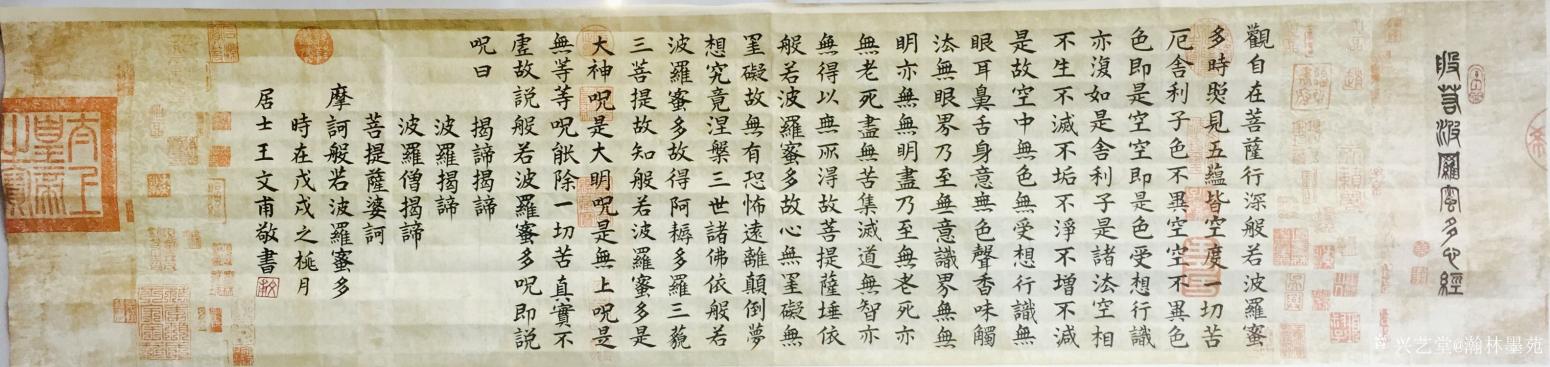 般若波羅蜜多心經
觀自在菩薩行深般若波羅蜜
多時照見五蘊皆空度一切苦
厄舍利子色不異空空不異色
色即是空空即是色受想行識
亦復如是舍利子是諸法空相
不生不滅不垢不淨不增不減
是故空中無色無受想行識無
眼耳鼻舌身意無色聲香味觸
法無眼界乃至無意識界無無
明亦無無明盡乃至無老死亦
無老死盡無苦集滅道無智亦
無得以無所得故菩提薩埵依
般若波羅蜜多故心無罣礙無
罣礙故無有恐怖遠離顛倒夢
想究竟涅槃三世諸佛依般若
波羅蜜多故得阿耨多羅三藐
三菩提故知般若波羅蜜多是
大神呪是大明呪是無上呪是
無等等呪能除一切苦真實不
虛故說般若波羅蜜多呪即説
呪曰
揭諦揭諦
波羅揭諦
波羅僧揭諦
菩提薩婆訶
摩訶般若波羅蜜多
時在戊戌之桃月
居士王文甫敬書
太上
皇帝
之寶
兴艺堂@瀚林墨苑